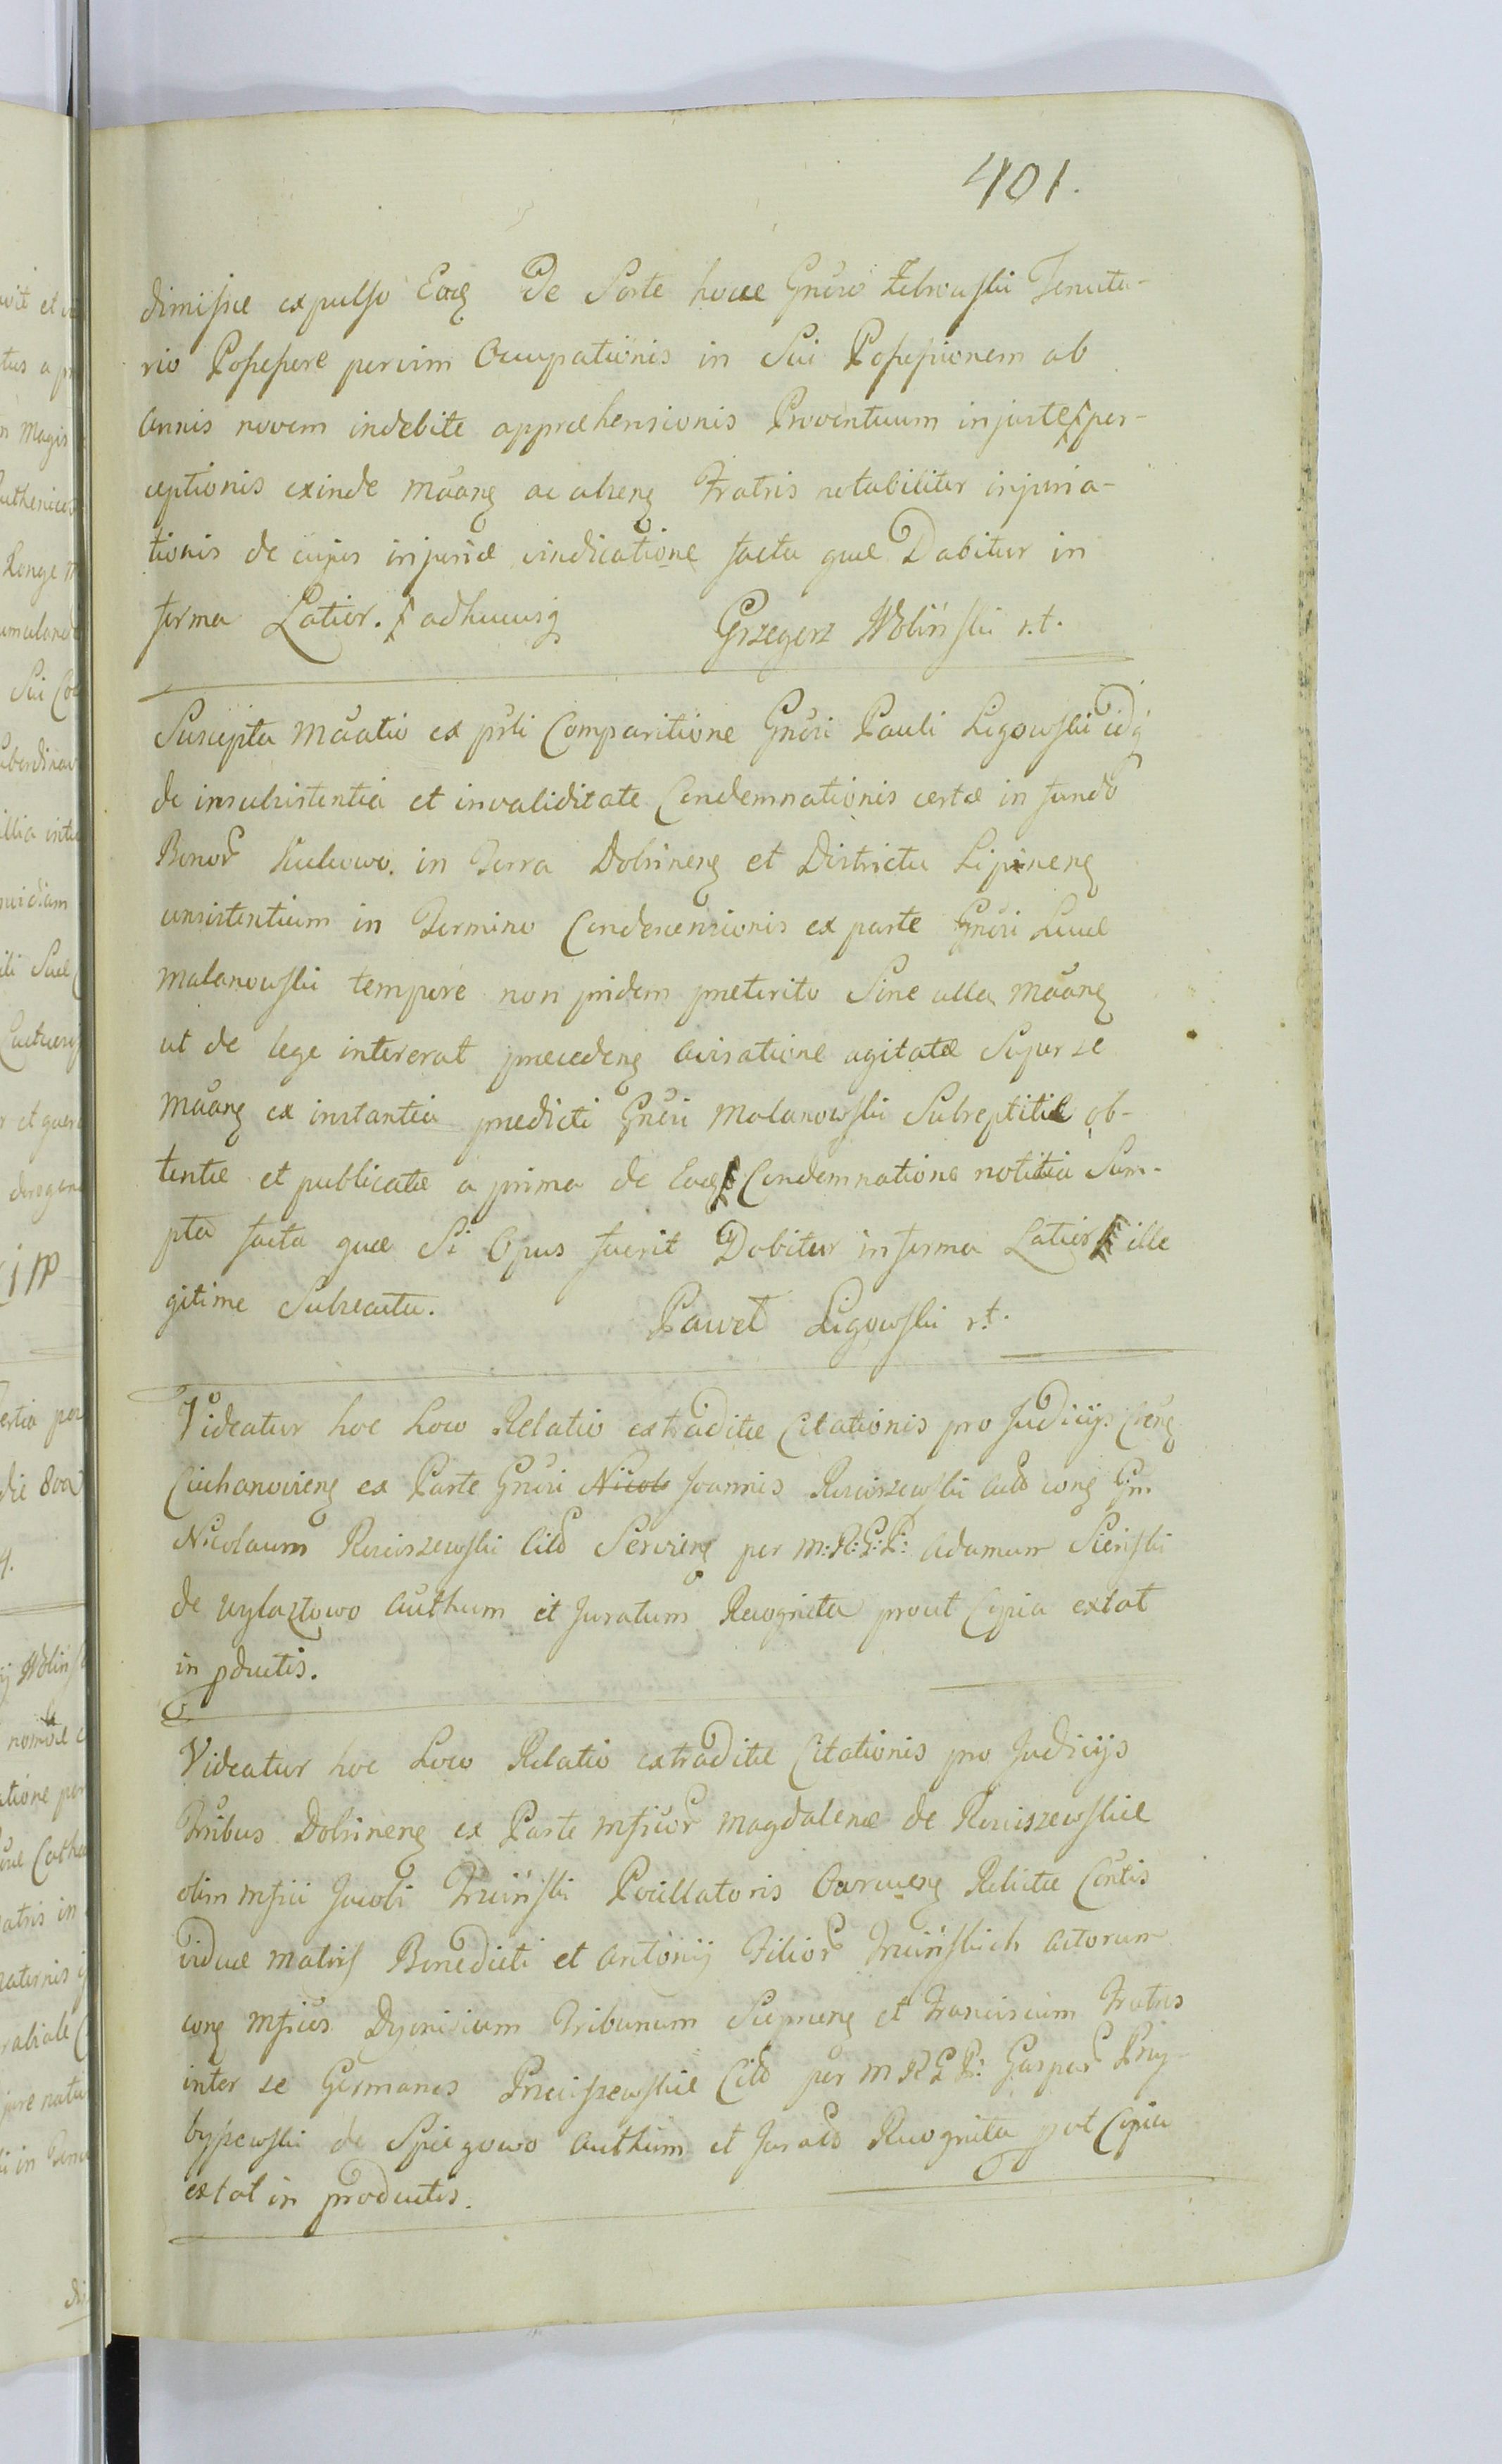 401.
dimissæ expulso Eadq De Sorte hocce Gnõso Zebrowski Tenuta-
rio Possessore per vim Occupationis in Sui Possessionem ab
annis novem indebite appræhensionis Proventuum injuste per-
ceptionis exinde mãang ac absenq Fratris notabiliter injuria-
tionis de cujus injuriæ vindicatione facta quæ Dabitur in
forma Latior. adhucusq Grzegorz Woliński r.t.
Suscepta mãatio ex psti Comparitione Gnõsi Pauli Ligowski idq
de insubsistentia et invaliditate Condemnationis certæ in fundo
Bonor in Terra Dobrineng et Districtu Lipineng
consistentium in Termino Condescensionis ex parte Gnõsi Lucæ
Malanowski tempore non pridem præterito Sine ulla mãang
ut de lege intererat præcedeng avisatione agitatæ Super se
mãang ex instantia prædicti Gnõsi Malanowski Subreptitiæ ob-
tentæ et publicatæ a prima de Eadq Condemnatione notitia Sum-
pta facta quæ Si Opus fuerit Dabitur in forma Latior ille
gitime Subsecuta. Paweł Ligowski r.t.
Videatur hoc Loco Relatio extraditæ Citationis pro Judicijs Creng
Ciechanovieng ex Parte Gnõsi Nicol Joannis Rościszewski cong Gm
Nicolaum Rościszewski Citõ Servieng per M:R:G:P: Adamum Sieński
de wylaztowo Authum et Juratum Recognita prout Copia extat
in pductis.
Videatur hoc Loco Relatio extraditæ Citationis pro Judicijs
Tribus Dobrineng ex Parte Mficor Magdalenæ de Rościszewskie
olim Mfici Jacobi Trzciński Pocillatoris Relictæ Contis
viduæ matris Benedicti et Antonij Filior Trzcińskich actorum
cong Mficos Dyonisium Tribunum Sierpceng et Franciscum Fratres
inter se Germanos Citõ per M R G P: Gaspar Przy-
byszewski de Spiczgowo Authum et Juratõ Recognita put Copia
extat in productis.